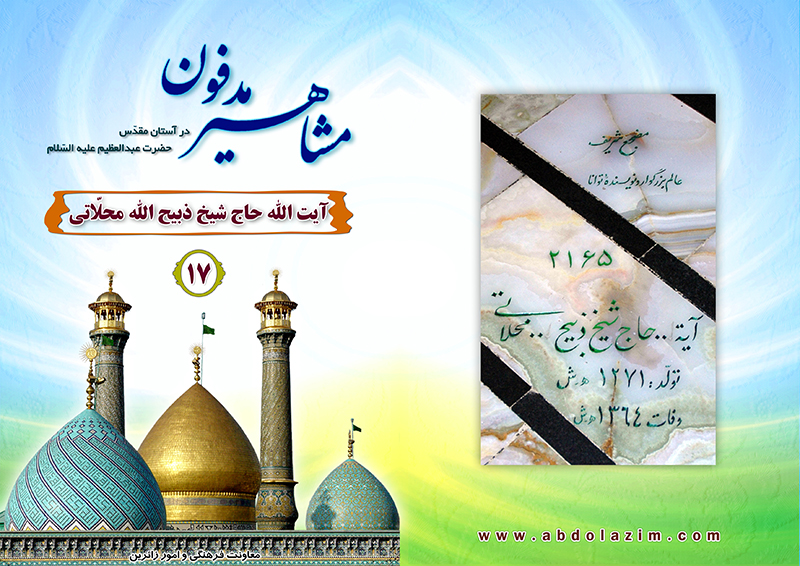 مشاهیر مدفون
در آستان مقدّس
حضرت عبدالعظیم علیه السّلام
آیت الله حاج شیخ ذبیح الله محلّاتی
۱۷
معاونت فرهنگی و امور زائرین
مضجع شریف
عالم بزرگوار و نویسندهٔ توانا
۲۱۶۵
آیة .. حاج شیخ ذبیح .. محلاتی
تولّد : ۱۲۷۱ ه ش
وفات ۱۳۶۴ ه ش
www.abdolazim.com